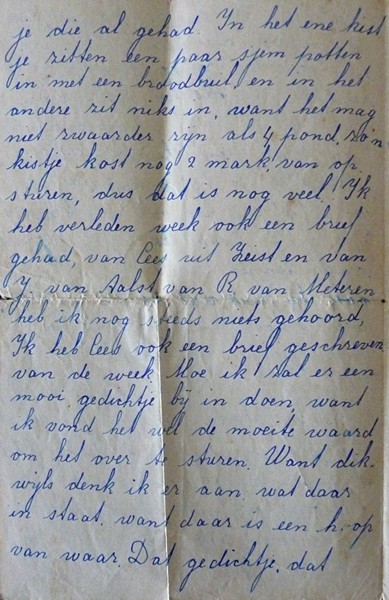 je die al gehad. In het ene kist
je zitten een paar sjem potten
in met een broodbuil, en in het
andere zit niks in, want het mag
niet zwaarder zijn als 4 pond, zo'n
kistje kost nog 2 mark. van op
sturen, dus dat is nog veel. Ik
heb verleden week ook een brief
gehad van Cees uit Zeist en van
J. van Aalst van R. van Meteren
heb ik nog steeds niets gehoord,
Ik heb Cees ook een brief geschreven
van de week Moe ik zal er een
mooi gedichtje bij in doen, want
ik vond het wel de moeite waard
om het over te sturen. Want dik-
wijls denk ik er aan, wat daar
in staat. want daar is een h-op
van waar. Dat gedichtje, dat